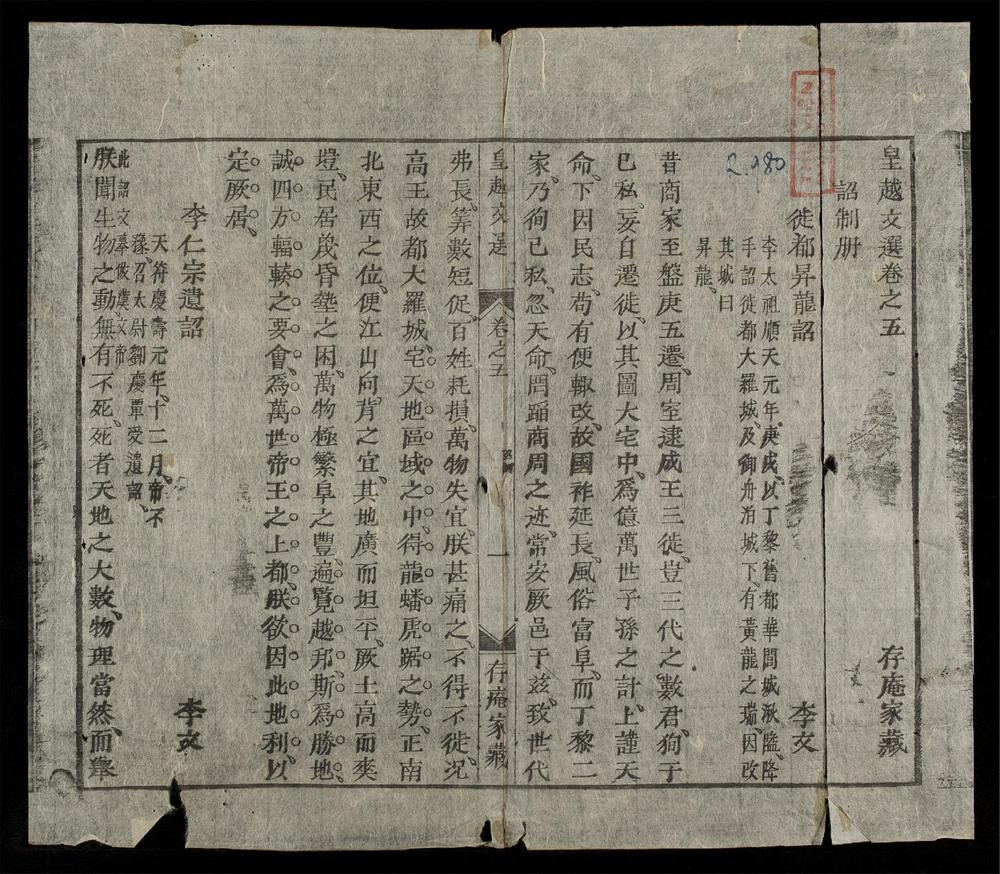 皇越文選卷之五
存庵家藏
詔制册
2.980
徙都昇龍詔
李文
李太祖順天元年庚戌以丁黎舊都華閭城湫隘、降
手詔徙都大羅城、及御舟泊城下、有黃龍之瑞、因改
其城曰
昇龍、
昔商家至盤庚五遷、周室逮成王三徙、豈三代之數君、狥于
己私、妄自遷徙、以其圖大宅中、爲億萬世子孫之計、上謹天
命、下因民志、苟有便輙改、故國祚延長、風俗富阜、而丁黎二
家、乃狥己私、忽天命、罔蹈商周之迹、常安厥邑于茲、致世代
皇越文選
卷之五
一
存庵家藏
弗長、筭數短促、百姓耗損、萬物失宜、朕甚痛之、不得不徙、况
高王故都大羅城、宅天地區域之中、得龍蟠虎踞之勢、正南
北東西之位、便江山向背之宜、其地廣而坦平、厥土高而爽
塏、民居蔑昏墊之困、萬物極繁阜之豐、遍覽越邦、斯爲勝地、
誠四方輻輳之要會、爲萬世帝王之上都、朕欲因此地利、以
定厥居、
李仁宗遺詔
李文
天符慶壽元年、十二月、帝不
豫、召太尉劉慶覃受遺詔、
此詔文摹倣虞文帝
朕聞生物之動、無有不死、死者天地之大數、物理當然、而舉